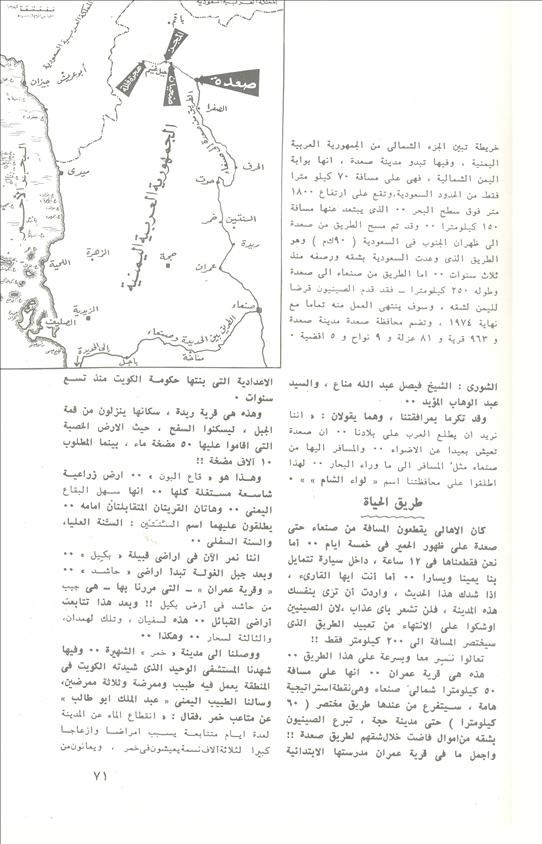 المملكة العربية السعودية
أبوعريش
جيزان
النجد
جبل غنيم
هجرة فللة
ضحيان
صعدة
الصفرا
الطريق من صعدة الى صنعاء
الجمهورية العربية اليمنية
البحر الأحمر
الحرف
حوت
ميدى
السنتين
خمر
ريدة
حجة
عمران
الزهرة
اللحية
صنعاء
الزيدية
الصليف
الطريق بين الحديدة وصنعاء
مناخة
باجل
إلى الحديدة
خريطة تبين الجزء الشمالى من الجمهورية العربية
اليمنية ، وفيها تبدو مدينة صعدة ، انها بوابة
اليمن الشمالية ، فهى على مسافة ٧٠ كيلو مترا
فقط من الحدود السعودية,وتقع على ارتفاع ١٨٠٠
متر فوق سطح البحر ٠٠ الذى يبتعد عنها مسافة
١٥٠ كيلومترا ٠٠ وقد تم مسح الطريق من صعدة
الى ظهران الجنوب فى السعودية ( ٩٠كم ) وهو
الطريق الذى وعدت السعودية بشقه ورصفه منذ
ثلاث سنوات ٠٠ اما الطريق من صنعاء الى صعدة
وطوله ٢٥٠ كيلومترا ــ فقد قدم الصينيون قرضا
لليمن لشقه ، وسوف ينتهى العمل منه تماما مع
نهاية ١٩٧٤ ، وتضم محافظة صعدة مدينة صعدة
و ٩٦٣ قرية و ٨١ عزلة و ٩ نواح و ٥ اقضية ٠
الشورى : الشيخ فيصل عبد الله مناع ، والسيد
عبد الوهاب المؤيد ٠٠
وقد تكرما بمرافقتنا ، وهما يقولان : « اننا
نريد ان يطلع العرب على بلادنا ٠٠ ان صعدة
تعيش بعيدا عن الاضواء ٠٠ والمسافر اليها من
صنعاء مثل المسافر الى ما وراء البحار ٠٠ لهذا
اطلقوا على محافظتنا اسم « لواء الشام » » ٠
طريق الحياة
كان الاهالى يقطعون المسافة من صنعاء حتى
صعدة على ظهور الحمير فى خمسة ايام ٠٠ أما
نحن فقطعناها فى ١٢ ساعة ، داخل سيارة تتمايل
بنا يمينا ويسارا ٠٠ أما أنت ايها القارىء ،
اذا شدك هذا الحديث ، واردت أن ترى بنفسك
هذه المدينة ، فلن تشعر بأى عذاب ،لان الصينيين
اوشكوا على الانتهاء من تعبيد الطريق الذى
سيختصر المسافة الى ٢٠٠ كيلومتر فقط !!
تعالوا نسير معا وبسرعة على هذا الطريق ٠٠
هذه هى قرية عمران ٠٠ انها على مسافة
٥٠ كيلومترا شمالى صنعاء وهىنقطةاستراتيجية
هامة ، سيتفرع من عندها طريق مختصر ( ٦٠
كيلومترا ) حتى مدينة حجة ، تبرع الصينيون
بشقه من اموال فاضت خلال شقهم لطريق صعدة !!
واجمل ما فى قرية عمران مدرستها الابتدائية
الاعدادية التى بنتها حكومة الكويت منذ تسع
سنوات ٠
وهذه هى قرية ريدة ، سكانها ينزلون من قمة
الجبل ، ليسكنوا السفح ، حيث الارض الخصبة
التى اقاموا عليها ٥٠ مضخة ماء ، بينما المطلوب
١٠ آلاف مضخة !!
وهـذا هو « قاع البون » ٠٠ ارض زراعـية
شاسعة مستغلة كلها ٠٠ انها سهل البقاع
اليمنى ٠٠ وهاتان القريتان المتقابلتان امامه ٠٠
يطلقون عليهما اسم السنتين : السنة العليا،
والسنة السفلى ٠٠
اننا نمر الآن فى اراضى قبيلة « بكيل » ٠٠
وبعد جبل الغولة تبدأ اراضى « حاشد » ٠٠
« وقرية عمران » ــ التى مررنا بها ــ هى جيب
من حاشد فى أرض بكيل !! وبعد هذا تتابعت
أراضى القبائل ٠٠ هذه لسفيان ، وتلك لهمدان،
والثالثة لسحار ٠٠ وهكذا ٠٠
ووصلنا الى مدينة « خمر » الشهيرة ٠٠ وفيها
شهدنا المستشفى الوحيد الذى شيدته الكويت فى
المنطقة يعمل فيه طبيب وممرضة وثلاثة ممرضين،
وسالنا الطبيب اليمنى « عبد الملك ابو طالب »
عن متاعب خمر ،فقال : « انقطاع الماء عن المدينة
لعدة ايام متتابعة يسبب امراضا وازعاجا
كبيرا لثلاثة آلاف نسمة يعيشون فى خمر ، ويعانون من
٧١